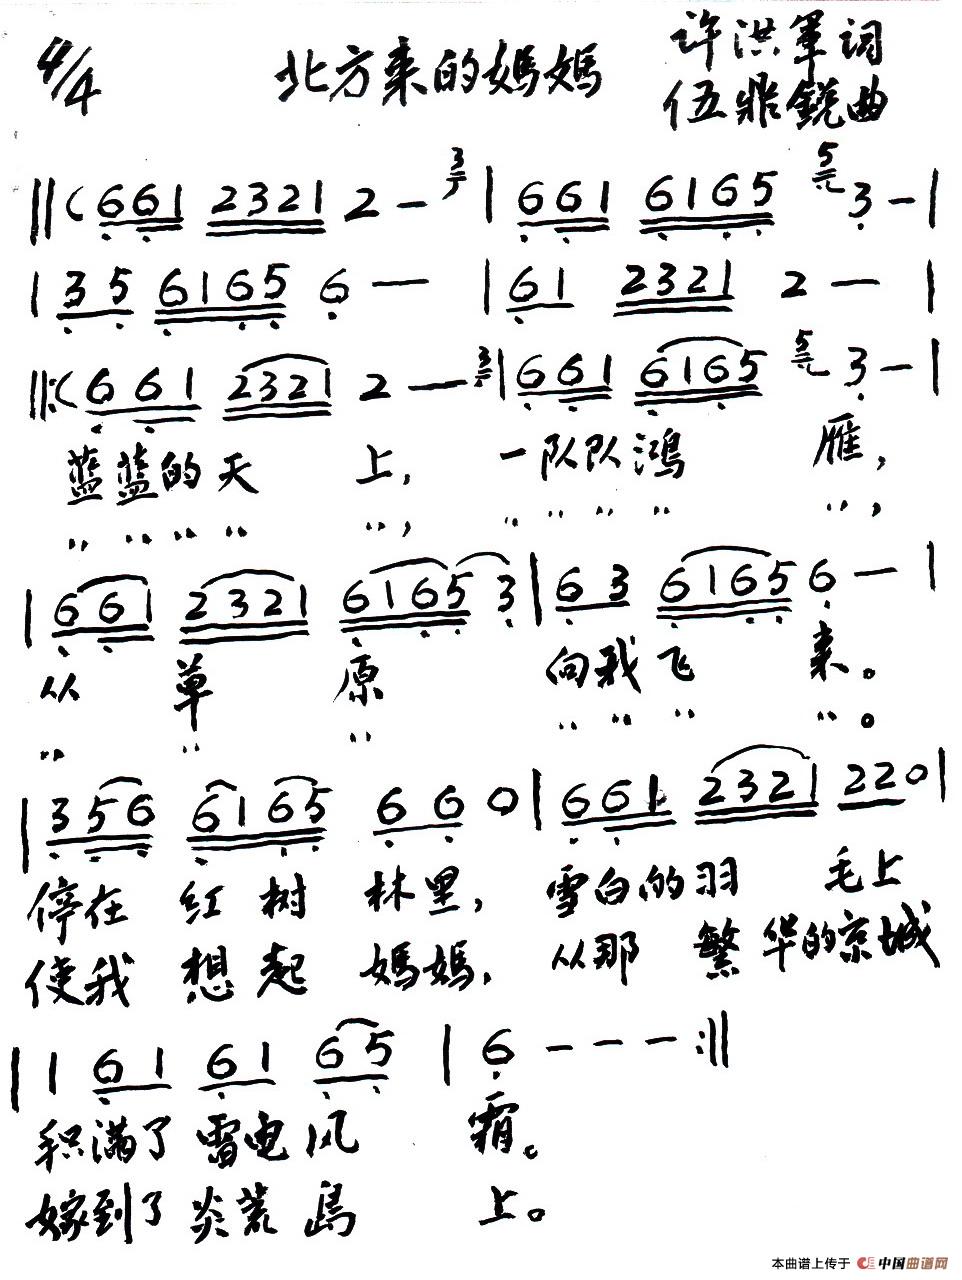 4/4 北方来的媽媽 许洪軍词
伍鼎銳曲
‖( 661 2321 2 – 3 | 661 6165 5 3 – |
| 35 6165 6 — | 61 2321 2 — |
‖:( 661 2321 2 — 3 | 661 6165 5 3 – |
蓝蓝的天 上, 一队队鸿 雁,
〃 〃 〃 〃 〃, 〃 〃 〃 〃 〃,
| 661 2321 6165 3 | 63 6165 6 – |
从 草 原 向我飞 来。
〃 〃 〃 〃 〃 〃 〃。
| 356 6165 660 | 661 2321 220 |
停在 红树 林里, 雪白的羽 毛上
使我 想起 媽媽, 从那 繁华的京城
| 1 61 61 65 | 6 – – – :‖
积满了雷电风 霜。
嫁到了炎荒島 上。
本曲谱上传于 中国曲谱网